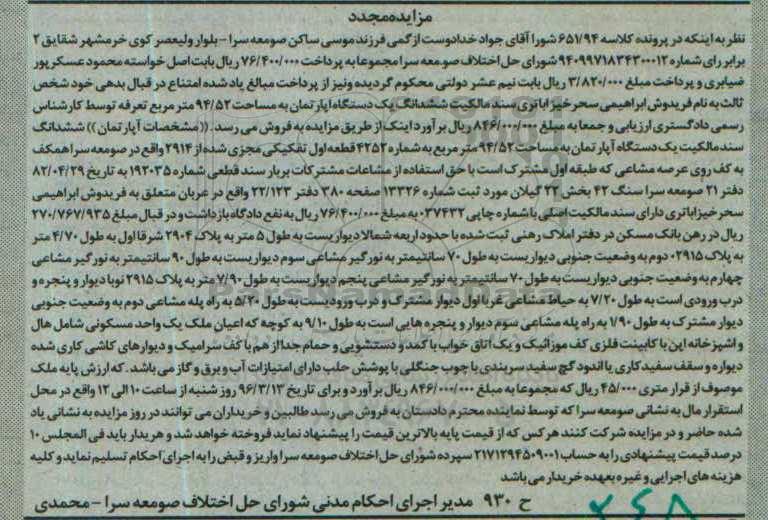 مزایده مجدد
نظر به اینکه در پرونده کلاسه ۶۵۱/۹۴ شورا آقای جواد خدادوست از گمی فرزند موسی ساکن صومعه سرا - بلوار ولیعصر کوی خرمشهر شقایق ۲
برابر رای شماره ۹۴۰۹۹۷۱۸۳۴۳۰۰۰۱۲ شورای حل اختلاف صومعه سرا مجموعا به پرداخت ۷۶/۴۰۰/۰۰۰ ریال بابت اصل خواسته محمود عسکرپور
ضیابری و پرداخت مبلغ ۳/۸۲۰/۰۰۰ ریال بابت نیم عشر دولتی محکوم گردیده ونیز از پرداخت مبالغ یاد شده امتناع در قبال بدهی خود شخص
ثالث به نام فریدوش ابراهیمی سحر خیز اباتری سند مالکیت ششدانگ یک دستگاه آپارتمان به مساحت ۹۴/۵۲ متر مربع تعرفه توسط کارشناس
رسمی دادگستری ارزیابی و جمعا به مبلغ ۸۴۶/۰۰۰/۰۰۰ ریال بر آورد اینک از طریق مزایده به فروش می رسد. ((مشخصات آپارتمان)) ششدانگ
سند مالکیت یک دستگاه آپارتمان به مساحت ۹۴/۵۲ متر مربع به شماره ۴۲۵۲ قطعه اول تفکیکی مجزی شده از ۲۹۱۴ واقع در صومعه سرا همکف
به کف روی عرصه مشاعی که طبقه اول مشترک است با حق استفاده از مشاعات مشترکات بر بار سند قطعی شماره ۱۹۲۰۳۵ به تاریخ ۸۲/۰۴/۲۹
دفتر ۲۱ صومعه سرا سنگ ۴۲ بخش ۲۲ گیلان مورد ثبت شماره ۱۳۳۲۶ صفحه ۳۸۰ دفتر ۲۲/۱۲۳ واقع در عربان متعلق به فریدوش ابراهیمی
سحر خیز اباتری دارای سند مالکیت اصلی با شماره چاپی ۰۳۷۴۳۲ به مبلغ ۷۶/۴۰۰/۰۰۰ ریال به نفع دادگاه بازداشت و در قبال مبلغ ۲۷۰/۷۶۷/۹۳۵
ریال در رهن بانک مسکن در دفتر املاک رهنی ثبت شده با حدود اربعه شمالا دیواریست به طول ۵ متر به پلاک ۲۹۰۴ شرقا اول به طول ۴/۷۰ متر
به پلاک ۰۲۹۱۵ دوم به وضعیت جنوبی دیواریست به طول ۷۰ سانتیمتر به نورگیر مشاعی سوم دیواریست به طول ۹۰ سانتیمتر به نورگیر مشاعی
چهارم به وضعیت جنوبی دیواریست به طول ۷۰ سانتیمتر به نورگیر مشاعی پنجم دیواریست به طول ۷/۹۰ متر به پلاک ۲۹۱۵ نوبا دیوار و پنجره و
درب ورودی است به طول ۷/۲۰ به حیاط مشاعی غربا اول دیوار مشترک و درب ورودیست به طول ۵/۲۰ به راه پله مشاعی دوم به وضعیت جنوبی
دیوار مشترک به طول ۱/۹۰ به راه پله مشاعی سوم دیوار و پنجره هایی است به طول ۹/۱۰ به کوچه که اعیان ملک یک واحد مسکونی شامل هال
و اشپزخانه اپن با کابینت فلزی کف موزائیک و یک اتاق خواب با کمد و دستشویی و حمام جدا از هم با کف سرامیک و دیوارهای کاشی کاری شده
دیواره و سقف سفید کاری یا اندود گچ سفید سربندی با چوب جنگلی با پوشش حلب دارای امتیازات آب و برق و گاز می باشد. که ارزش پایه ملک
موصوف از قرار متری ۴۵/۰۰۰ ریال که مجموعا به مبلغ ۸۴۶/۰۰۰/۰۰۰ ریال بر آورد و برای تاریخ ۹۶/۳/۱۳ روز شنبه از ساعت ۱۰ الی ۱۲ واقع در محل
استقرار مال به نشانی صومعه سرا که توسط نماینده محترم دادستان به فروش می رسد طالبین و خریداران می توانند در روز مزایده به نشانی یاد
شده حاضر و در مزایده شرکت کنند هر کس که از قیمت پایه بالاترین قیمت را پیشنهاد نماید فروخته خواهد شد و هریدار باید فی المجلس ۱۰
درصد قیمت پیشنهادی را به حساب ۲۱۷۱۲۹۴۵۰۹۰۰۱ سپرده شورای حل اختلاف صومعه سرا واریز و قبض را به اجرای احکام تسلیم نماید و کلیه
هزینه های اجرایی و غیره بعهده خریدار می باشد
ح ۹۳۰ مدیر اجرای احکام مدنی شورای حل اختلاف صومعه سرا - محمدی